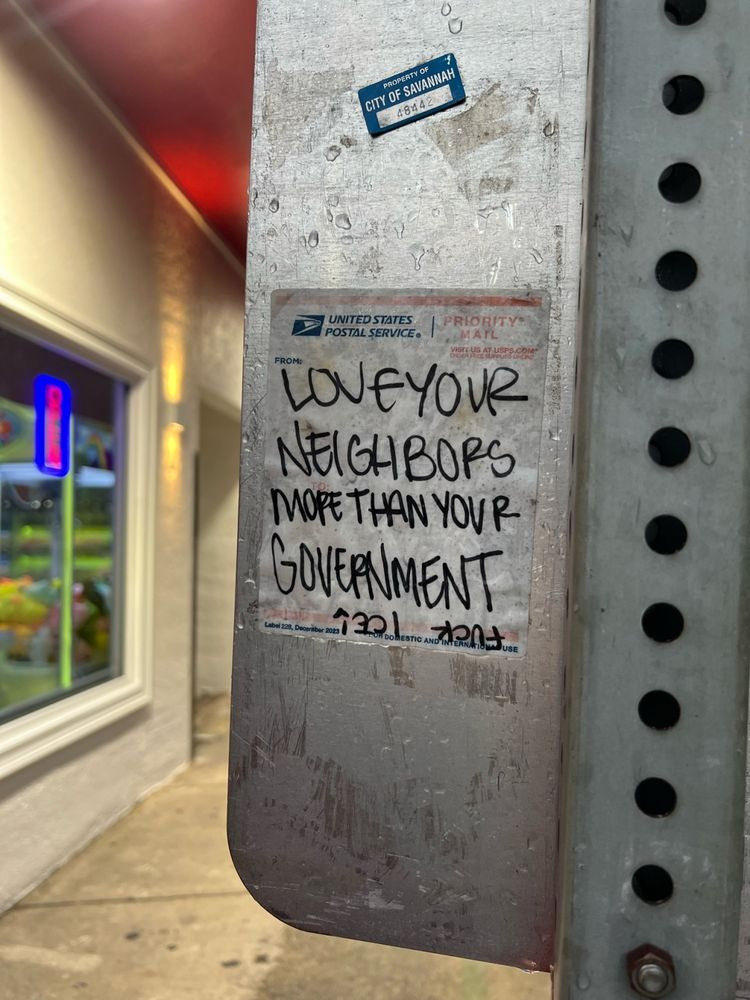 PROPERTY OF
CITY OF SAVANNAH
48442
UNITED STATES
POSTAL SERVICE®
PRIORITY®
MAIL
VISIT US AT USPS.COM®
ORDER FREE SUPPLIES ONLINE
FROM:
LOVE YOUR
NEIGHBORS
TO:
MORE THAN YOUR
GOVERNMENT
FUCK ICE!
Label 228, December 2023
FOR DOMESTIC AND INTERNATIONAL USE